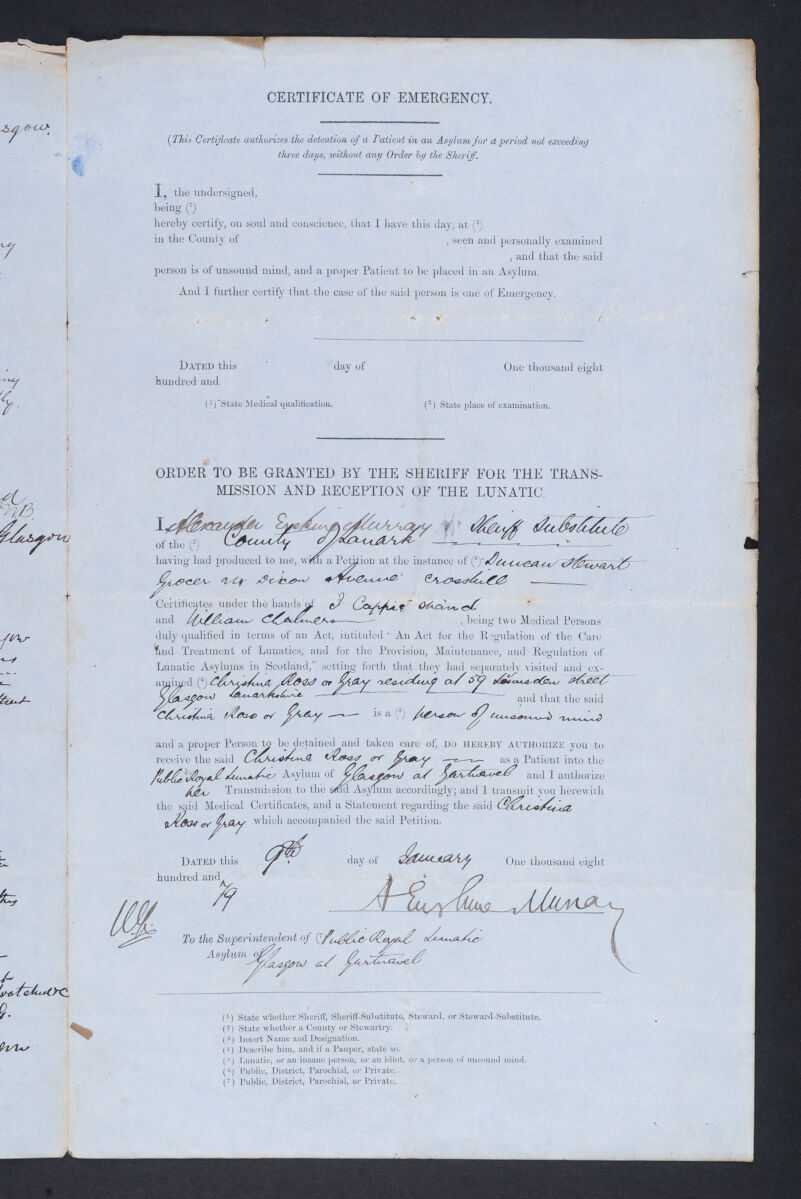 CERTIFICATE OF EMERGENCY.
(This Certificate authorizes the detention of a Patient in an Asylum for a period not exceeding
three days, without any Order by the Sheriff.
I, the undersigned,
being (1)
hereby certify, on soul and conscience, that I have this day, at (2)
in the County of , seen and personally examined
, and that the said
person is of unsound mind, and a proper Patient to be placed in an Asylum.
And I further certify that the case of the said person is one of Emergency.
DATED this day of One thousand eight
hundred and
(1) State Medical qualification. (2) State place of examination.
ORDER TO BE GRANTED BY THE SHERIFF FOR THE TRANS-
MISSION AND RECEPTION OF THE LUNATIC.
I, Alexander Erskine Murray Sheriff Substitute
of the (2) County of Lanark
having had produced to me, with a Petition at the instance of (3) Duncan Stewart
Grocer Dixon Avenue Crosshill
Certificates under the hands of
and William Chalmers , being two Medical Persons
duly qualified in terms of an Act, intituled "An Act for the Regulation of the Care
and Treatment of Lunatics, and for the Provision, Maintenance, and Regulation of
Lunatic Asylums in Scotland," setting forth that they had separately visited and ex-
amined (4) Christina Ross or Gray residing at 59 Lumsden Street
Glasgow Lanarkshire and that the said
Christina Ross or Gray is a (5) person of unsound mind
and a proper Person to be detained and taken care of, DO HEREBY AUTHORIZE you to
receive the said Christina Ross or Gray as a Patient into the
Public Royal Lunatic Asylum of Glasgow at Gartnavel and I authorize
her Transmission to the said Asylum accordingly; and I transmit you herewith
the said Medical Certificates, and a Statement regarding the said Christina
Ross or Gray which accompanied the said Petition.
DATED this 9th day of January One thousand eight
hundred and 79
A Erskine Murray
To the Superintendent of (7) Public Royal Lunatic
Asylum of Glasgow at Gartnavel
(1) State whether Sheriff, Sheriff-Substitute, Steward, or Steward-Substitute.
(2) State whether a County or Stewartry.
(3) Insert Name and Designation.
(4) Describe him, and if a Pauper, state so.
(5) Lunatic, or an insane person, or an idiot, or a person of unsound mind.
(6) Public, District, Parochial, or Private.
(7) Public, District, Parochial, or Private.